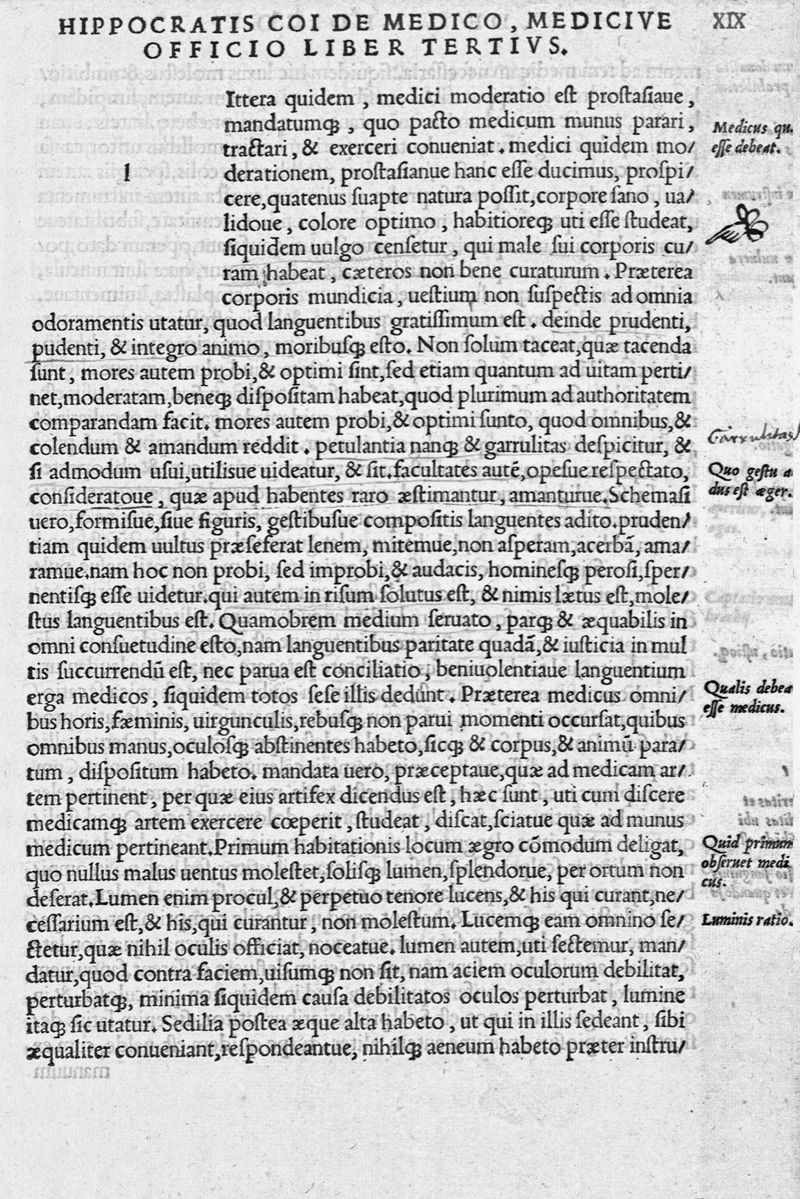 HIPPOCRATIS COI DE MEDICO, MEDICIVE
OFFICIO LIBER TERTIVS.
XIX
l
Ittera quidem, medici moderatio eſt proſtaſiaue,
mandatumqꝫ, quo pacto medicum munus parari,
tractari, & exerceri conueniat. medici quidem mo/
derationem, proſtaſianue hanc eſſe ducimus, proſpi/
cere, quatenus ſuapte natura poſſit, corpore ſano, ua/
lidoue, colore optimo, habitioreqꝫ uti eſſe ſtudeat,
ſiquidem uulgo cenſetur, qui male ſui corporis cu/
ram habeat, cæteros non bene curaturum. Præterea
corporis mundicia, ueſtium non ſuſpectis ad omnia
odoramentis utatur, quod languentibus gratiſſimum eſt. deinde prudenti,
pudenti, & integro animo, moribuſqꝫ eſto. Non ſolum taceat, quæ tacenda
ſunt, mores autem probi, & optimi ſint, ſed etiam quantum ad uitam perti/
net, moderatam, beneqꝫ diſpoſitam habeat, quod plurimum ad authoritatem
comparandam facit. mores autem probi, & optimi ſunto, quod omnibus, &
colendum & amandum reddit. petulantia nanqꝫ & garrulitas deſpicitur, &
ſi admodum uſui, utilisue uideatur, & ſit. facultates autē, opeſue reſpectato,
conſideratoue, quæ apud habentes raro æſtimantur, amanturue. Schemaſi
uero, formiſue, ſiue figuris, geſtibuſue compoſitis languentes adito. pruden/
tiam quidem uultus præſeferat lenem, mitemue, non aſperam, acerbā, ama/
ramue. nam hoc non probi, ſed improbi, & audacis, homineſqꝫ peroſi, ſper/
nentiſqꝫ eſſe uidetur. qui autem in riſum ſolutus eſt, & nimis lætus eſt, mole/
ſtus languentibus eſt. Quamobrem medium ſeruato, parqꝫ & æquabilis in
omni conſuetudine eſto, nam languentibus paritate quadā, & iuſticia in mul
tis ſuccurrendū eſt, nec parua eſt conciliatio, beniuolentiaue languentium
erga medicos, ſiquidem totos ſeſe illis dedunt. Præterea medicus omni/
bus horis, fæminis, uirgunculis, rebuſqꝫ non parui momenti occurſat, quibus
omnibus manus, oculoſqꝫ abſtinentes habeto, ſicqꝫ & corpus, & animū para/
tum, diſpoſitum habeto. mandata uero, præceptaue, quæ ad medicam ar/
tem pertinent, per quæ eius artifex dicendus eſt, hæc ſunt, uti cum diſcere
medicamqꝫ artem exercere cœperit, ſtudeat, diſcat, ſciatue quæ ad munus
medicum pertineant. Primum habitationis locum ægro cōmodum deligat,
quo nullus malus uentus moleſtet, ſoliſqꝫ lumen, ſplendorue, per ortum non
deſerat. Lumen enim procul, & perpetuo tenore lucens, & his qui curant, ne/
ceſſarium eſt, & his, qui curantur, non moleſtum. Lucemqꝫ eam omnino ſe/
ctetur, quæ nihil oculis officiat, noceatue. lumen autem, uti ſectemur, man/
datur, quod contra faciem, uiſumqꝫ non ſit, nam aciem oculorum debilitat,
perturbatqꝫ, minima ſiquidem cauſa debilitatos oculos perturbat, lumine
itaqꝫ ſic utatur. Sedilia poſtea æque alta habeto, ut qui in illis ſedeant, ſibi
æqualiter conueniant, reſpondeantue, nihilqꝫ aeneum habeto præter inſtru/
Medicus qu.
eſſe debeat.
Garrulitas
Quo geſtu a
dus eſt æger.
Qualis debea
eſſe medicus.
Quid primum
obſeruet medi
cus.
Luminis ratio.